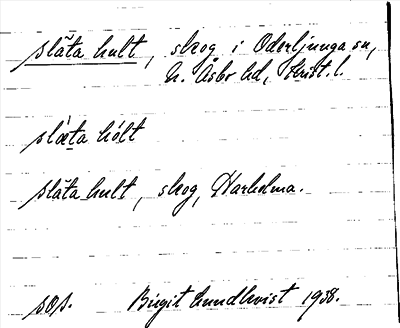 slät̃a hult, skog i Oderljunga sn,
N. Åsbo hd, Krist. l.
slǽta hólt
släta hult, skog, Harholma.
s.o.s. Birgit Lundkvist 1938.